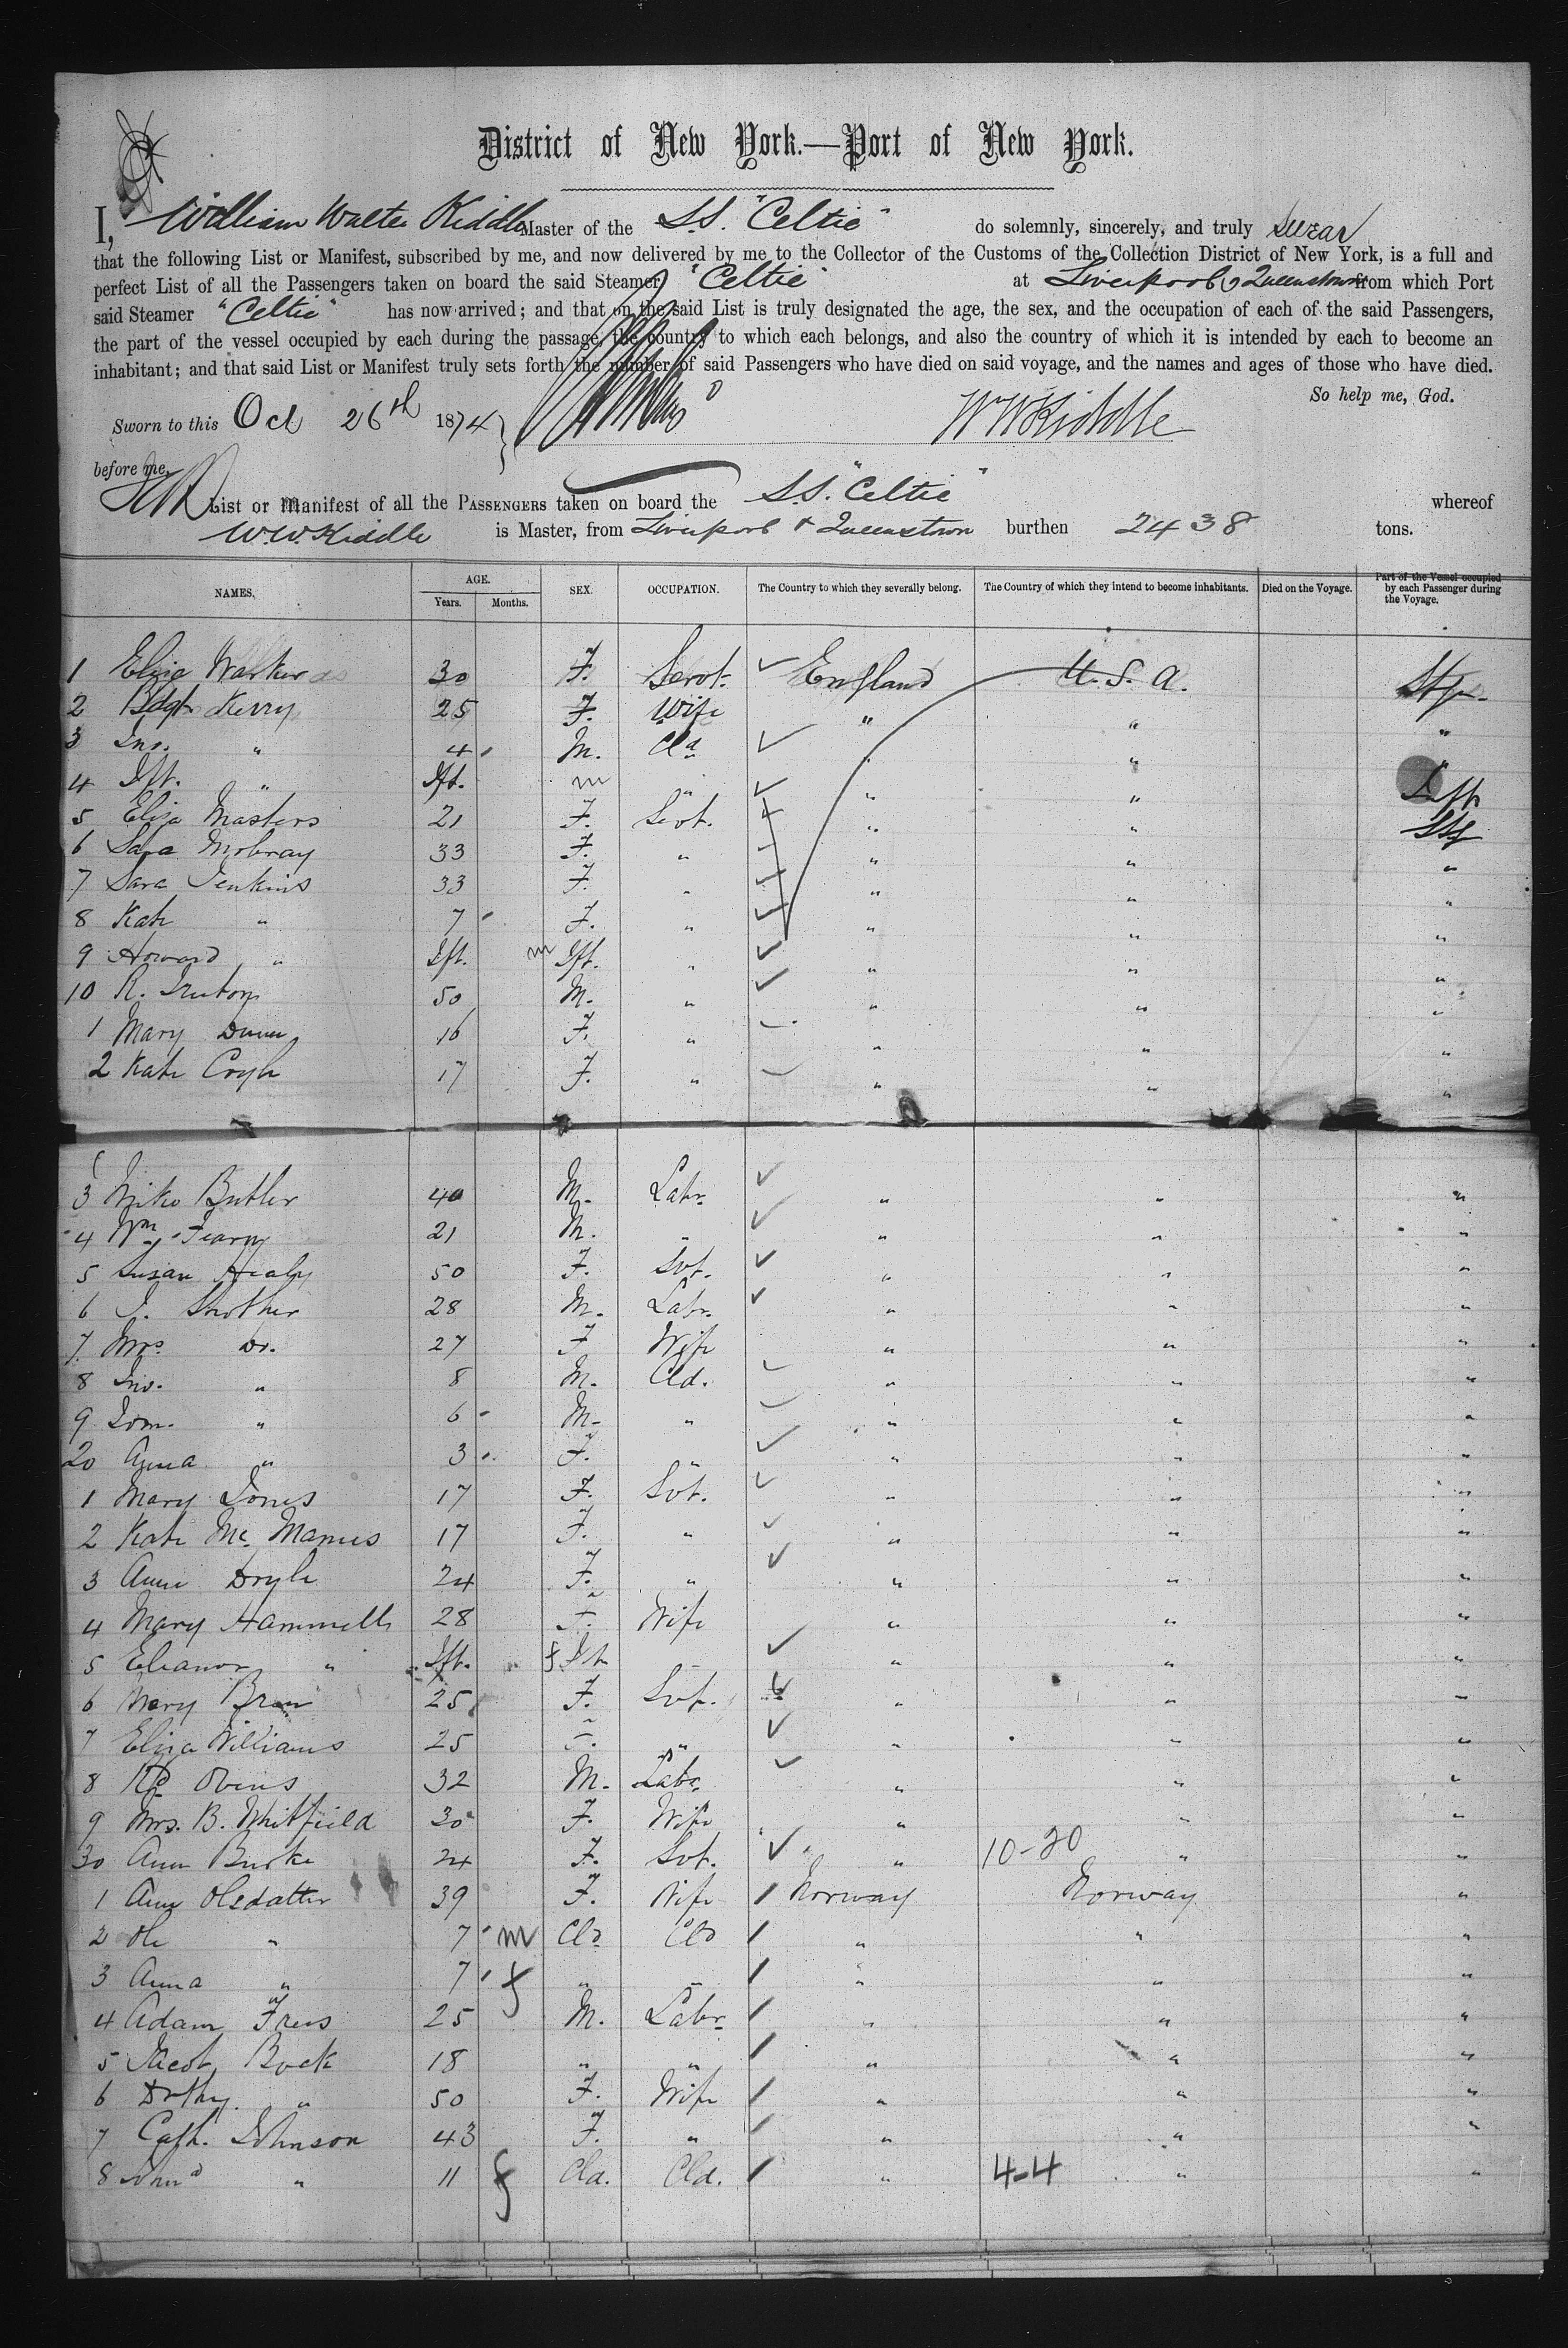 District of New York.—Port of New York.
I, William Walter Kiddle Master of the S.S. "Celtic" do solemnly, sincerely, and truly swear
that the following List or Manifest, subscribed by me, and now delivered by me to the Collector of the Customs of the Collection District of New York, is a full and
perfect List of all the Passengers taken on board the said Steamer "Celtic" at Liverpool & Queenstown from which Port
said Steamer "Celtic" has now arrived; and that on the said List is truly designated the age, the sex, and the occupation of each of the said Passengers,
the part of the vessel occupied by each during the passage, the country to which each belongs, and also the country of which it is intended by each to become an
inhabitant; and that said List or Manifest truly sets forth the number of said Passengers who have died on said voyage, and the names and ages of those who have died.
So help me, God.
Sworn to this Oct 26th 1874
WWKiddle
before me,
List or Manifest of all the PASSENGERS taken on board the S.S. "Celtic" whereof
W.W. Kiddle is Master, from Liverpool & Queenstown burthen 2438 tons.
NAMES. AGE. Years. Months. SEX. OCCUPATION. The Country to which they severally belong. The Country of which they intend to become inhabitants. Died on the Voyage. Part of the Vessel occupied by each Passenger during the Voyage.
1 Eliza 30 F. Servt. England U.S.A. Stge.
2 Bdgt Kerry 25 F. Wife " " "
3 Jno. " 4 M. Cld " "
4 Ift. " Ift. m " " " Ift
5 Eliza Masters 21 F. Servt. " " Stg
6 Sara Mobray 33 F. " " " "
7 Sara Jenkins 33 F. " " " "
8 Kate " 7 F. " " " "
9 Howard " Ift. m Ift. " " " "
10 R. 50 M. " " " "
1 Mary Dunn 16 F. " " " "
2 Kate Coyle 17 F. " " " "
3 Mike Butler 40 M. Labr. " " "
4 Wm 21 M. " " " "
5 Susan Healy 50 F. Svt. " " "
6 J. Strother 28 M. Labr. " " "
7 Mrs Do. 27 F Wife " " "
8 Jno. " 8 M. Cld. " " "
9 Tom. " 6 M. " " " "
20 Anna " 3 F. " " " "
1 Mary Jones 17 F. Svt. " " "
2 Kate Mc Manus 17 F. " " " "
3 Anne Doyle 24 F. " " " "
4 Mary Hammell 28 F. Wife " " "
5 Eleanor " Ift. f Ift " " "
6 Mary 25 F. Svt. " " "
7 Eliza Williams 25 F. " " " "
8 Rd Ovens 32 M. Labr. " " "
9 Mrs. B. Whitfield 30 F. Wife " " "
30 Ann Burke 24 F. Svt. " 10-20 " "
1 Ann Olsdatter 39 F. Wife Norway Norway "
2 Ole " 7 m Cld Cld " " "
3 Anna " 7 f " " " " "
4 Adam 25 M. Labr. " " "
5 Jacob Bock 18 " " " " "
6 Dothy. " 50 F. Wife " " "
7 Cath. Johnson 43 F. " " " "
8 " 11 f Cld. Cld. " 4-4 " "